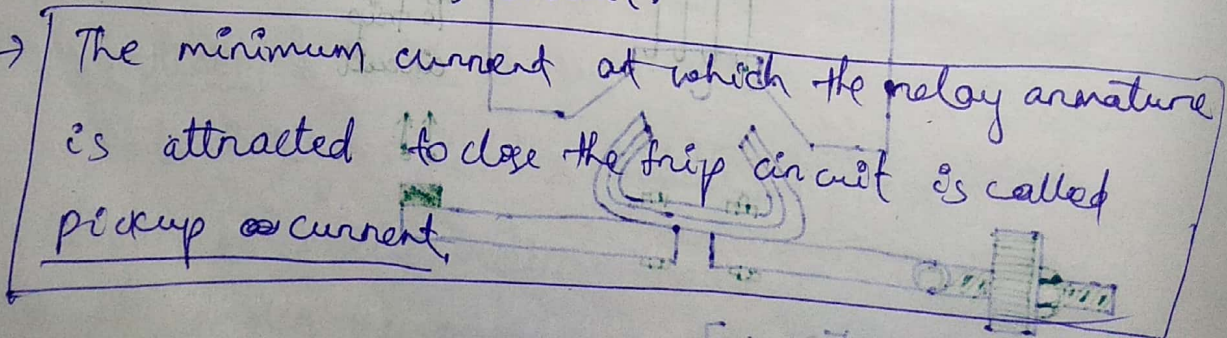 → The minimum current at which the relay armature
is attracted to close the trip circuit is called
pickup current.